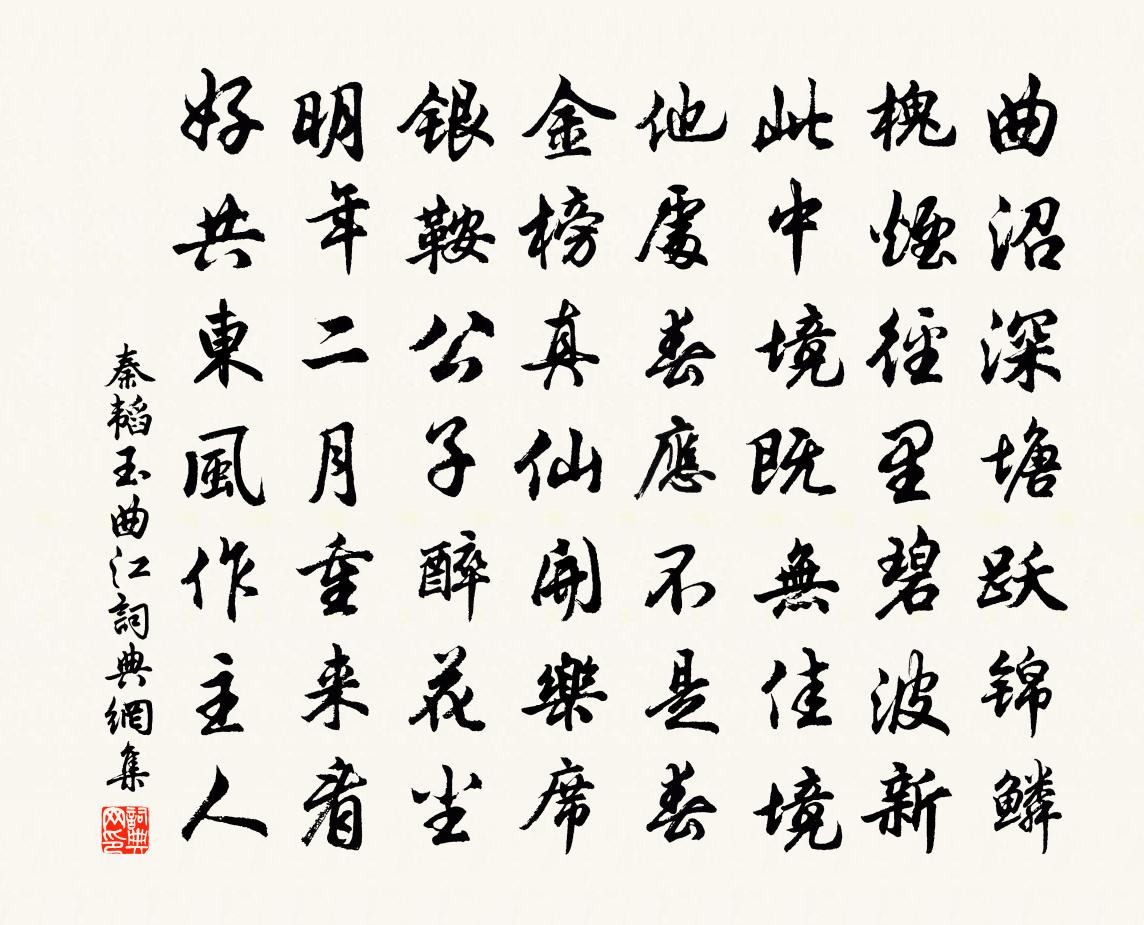 曲沼深塘跃锦鳞
槐煙徑里碧波新
此中境既無佳境
他處春應不是春
金榜真仙開樂席
銀鞍公子醉花尘
明年二月重来看
好共東風作主人
秦韬玉曲江詞典網集
詞典网印